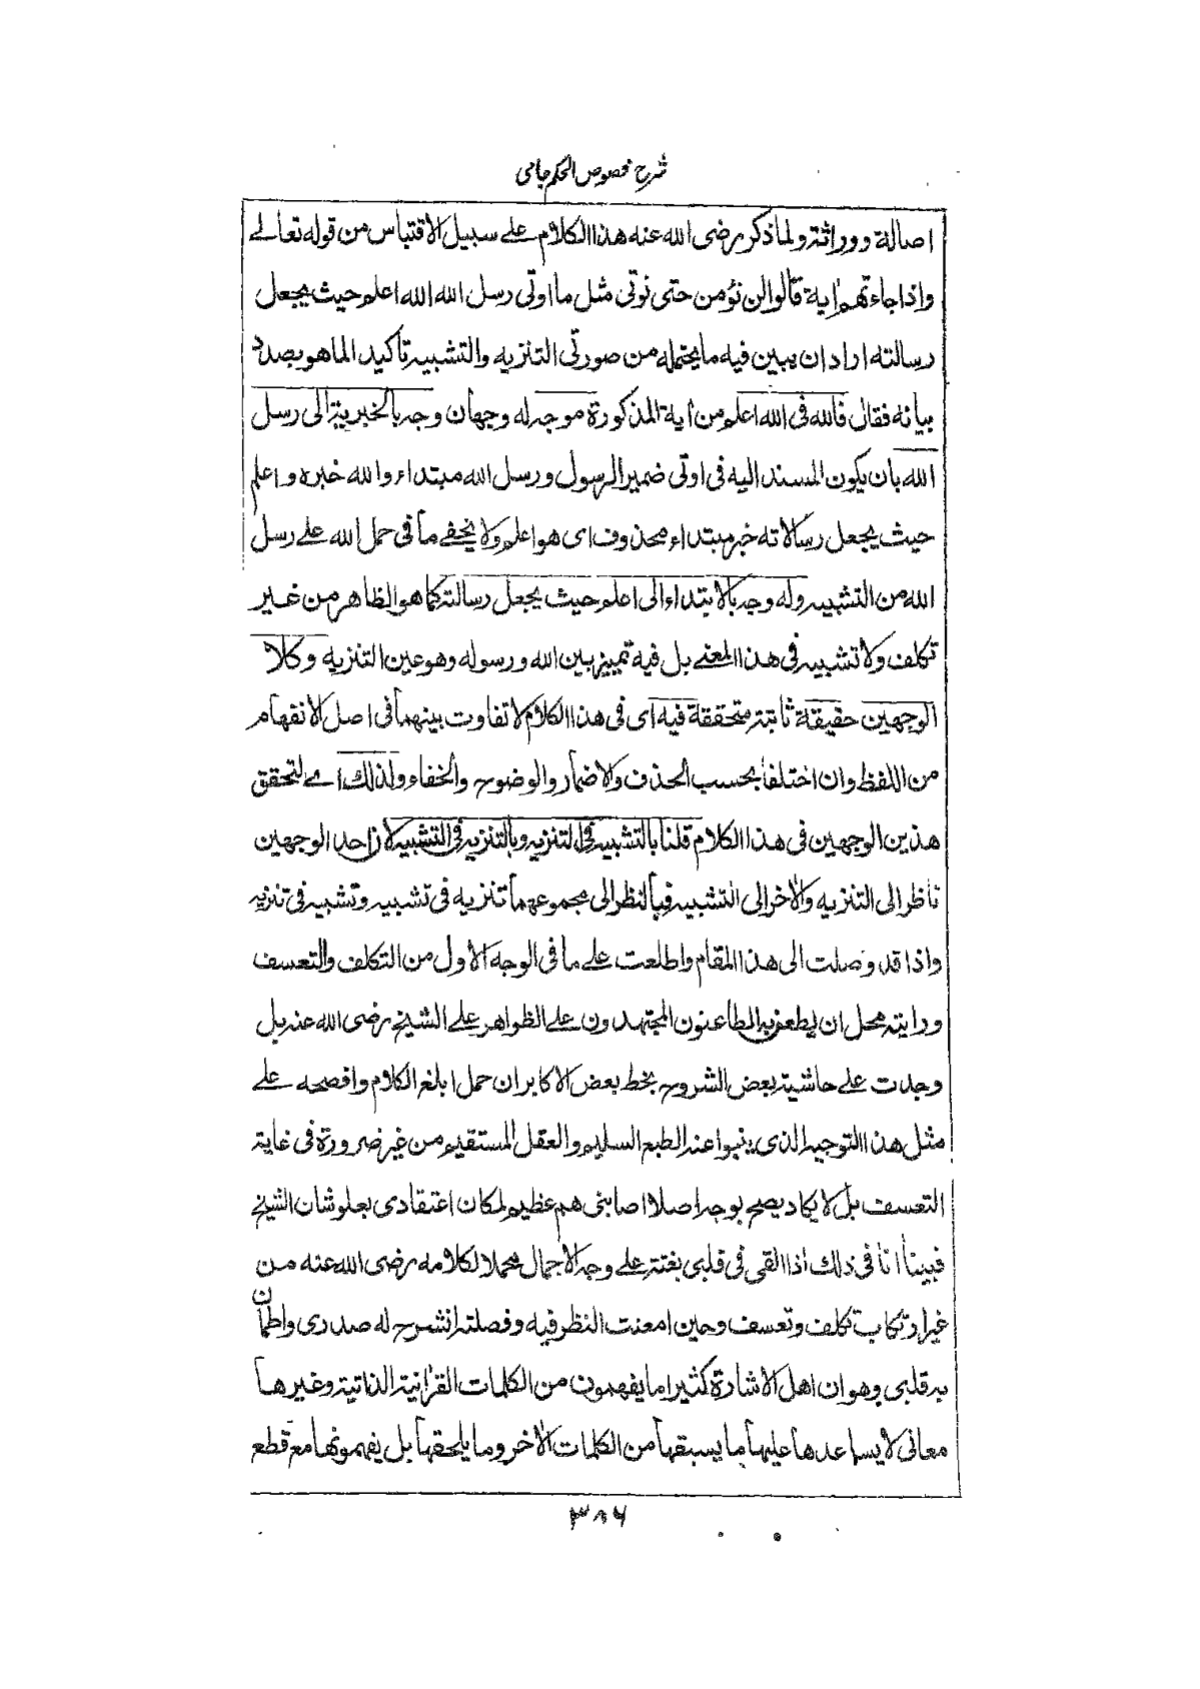 شرح فصوص الحكم جامى
اصالة ووراثة ولما ذكر رضى الله عنه هذا الكلام على سبيل الاقتباس من قوله تعالے
واذا جاءتهم اٰية قالوا لن نؤمن حتى نوتى مثل ما اوتى رسل الله الله اعلم حيث يجعل
رسالته اراد ان يبين فيه ما يحتمله من صورتى التنزيه والتشبيه تاكيد الما هو بصدد
بيانه فقال فالله فى الله اعلم من اية المذكورة موجه له وجهان وجه بالخبرية الى رسل
الله بان يكون المسند اليه فى اوتى ضمير الرسول ورسل الله مبتداء والله خبره واعلم
حيث يجعل رسالاته خبر مبتداء محذوف اى هو اعلم ولا يخفے ما فى حمل الله علے رسل
الله من التشبيه وله وجه بالابتداء الى اعلم حيث يجعل رسالته كما هو الظاهر من غير
تكلف ولا تشبيه فى هذا المعنے بل فيه تمييز بين الله ورسوله وهو عين التنزيه وكلا
الوجهين حقيقة ثابتة متحققة فيه اى فى هذا الكلام لا تفاوت بينهما فى اصل الانفهام
من اللفظ وان اختلفا بحسب الحذف والاضمار والوضوح والخفاء ولذلك اے لتحقق
هذين الوجهين فى هذا الكلام قلنا بالتشبيه فى التنزيه وبالتنزيه فى التشبيه لان احد الوجهين
ناظر الى التنزيه والاٰخر الى التشبيه فبالنظر الى مجموعهما تنزيه فى تشبيه وتشبيه فى تنزيه
واذا قد وصلت الى هذا المقام واطلعت علے ما فى الوجه الاول من التكلف والتعسف
ودايته محل ان يطعن به الطاعنون المجتهدون علے الظواهر علے الشيخ رضى الله عنه بل
وجدت علے حاشية بعض الشروح بخط بعض الاكابر ان حمل ابلغ الكلام وافصحه علے
مثل هذا التوجيه الذى ينبوا عنه الطبع السليم والعقل المستقيم من غير ضرورة فى غاية
التعسف بل لا يكاد يصح بوجه اصلا اصابنى هم عظيم لمكان اعتقادى بعلو شان الشيخ
فبينا انا فى ذلك اذا القى فى قلبى بغتة علے وجه الاجمال محملا لكلامه رضى الله عنه من
غير ارتكاب تكلف وتعسف وحين امعنت النظر فيه وفصلته انشرح له صدرى واطمان
به قلبى وهو ان اهل الاشارة كثيرا ما يفهمون من الكلمات القراٰنية الذاتية وغيرها
معانى لا يساعدها عليها ما يسبقها من الكلمات الاٰخر وما يلحقها بل يفهمونها مع قطع
٣٨٦